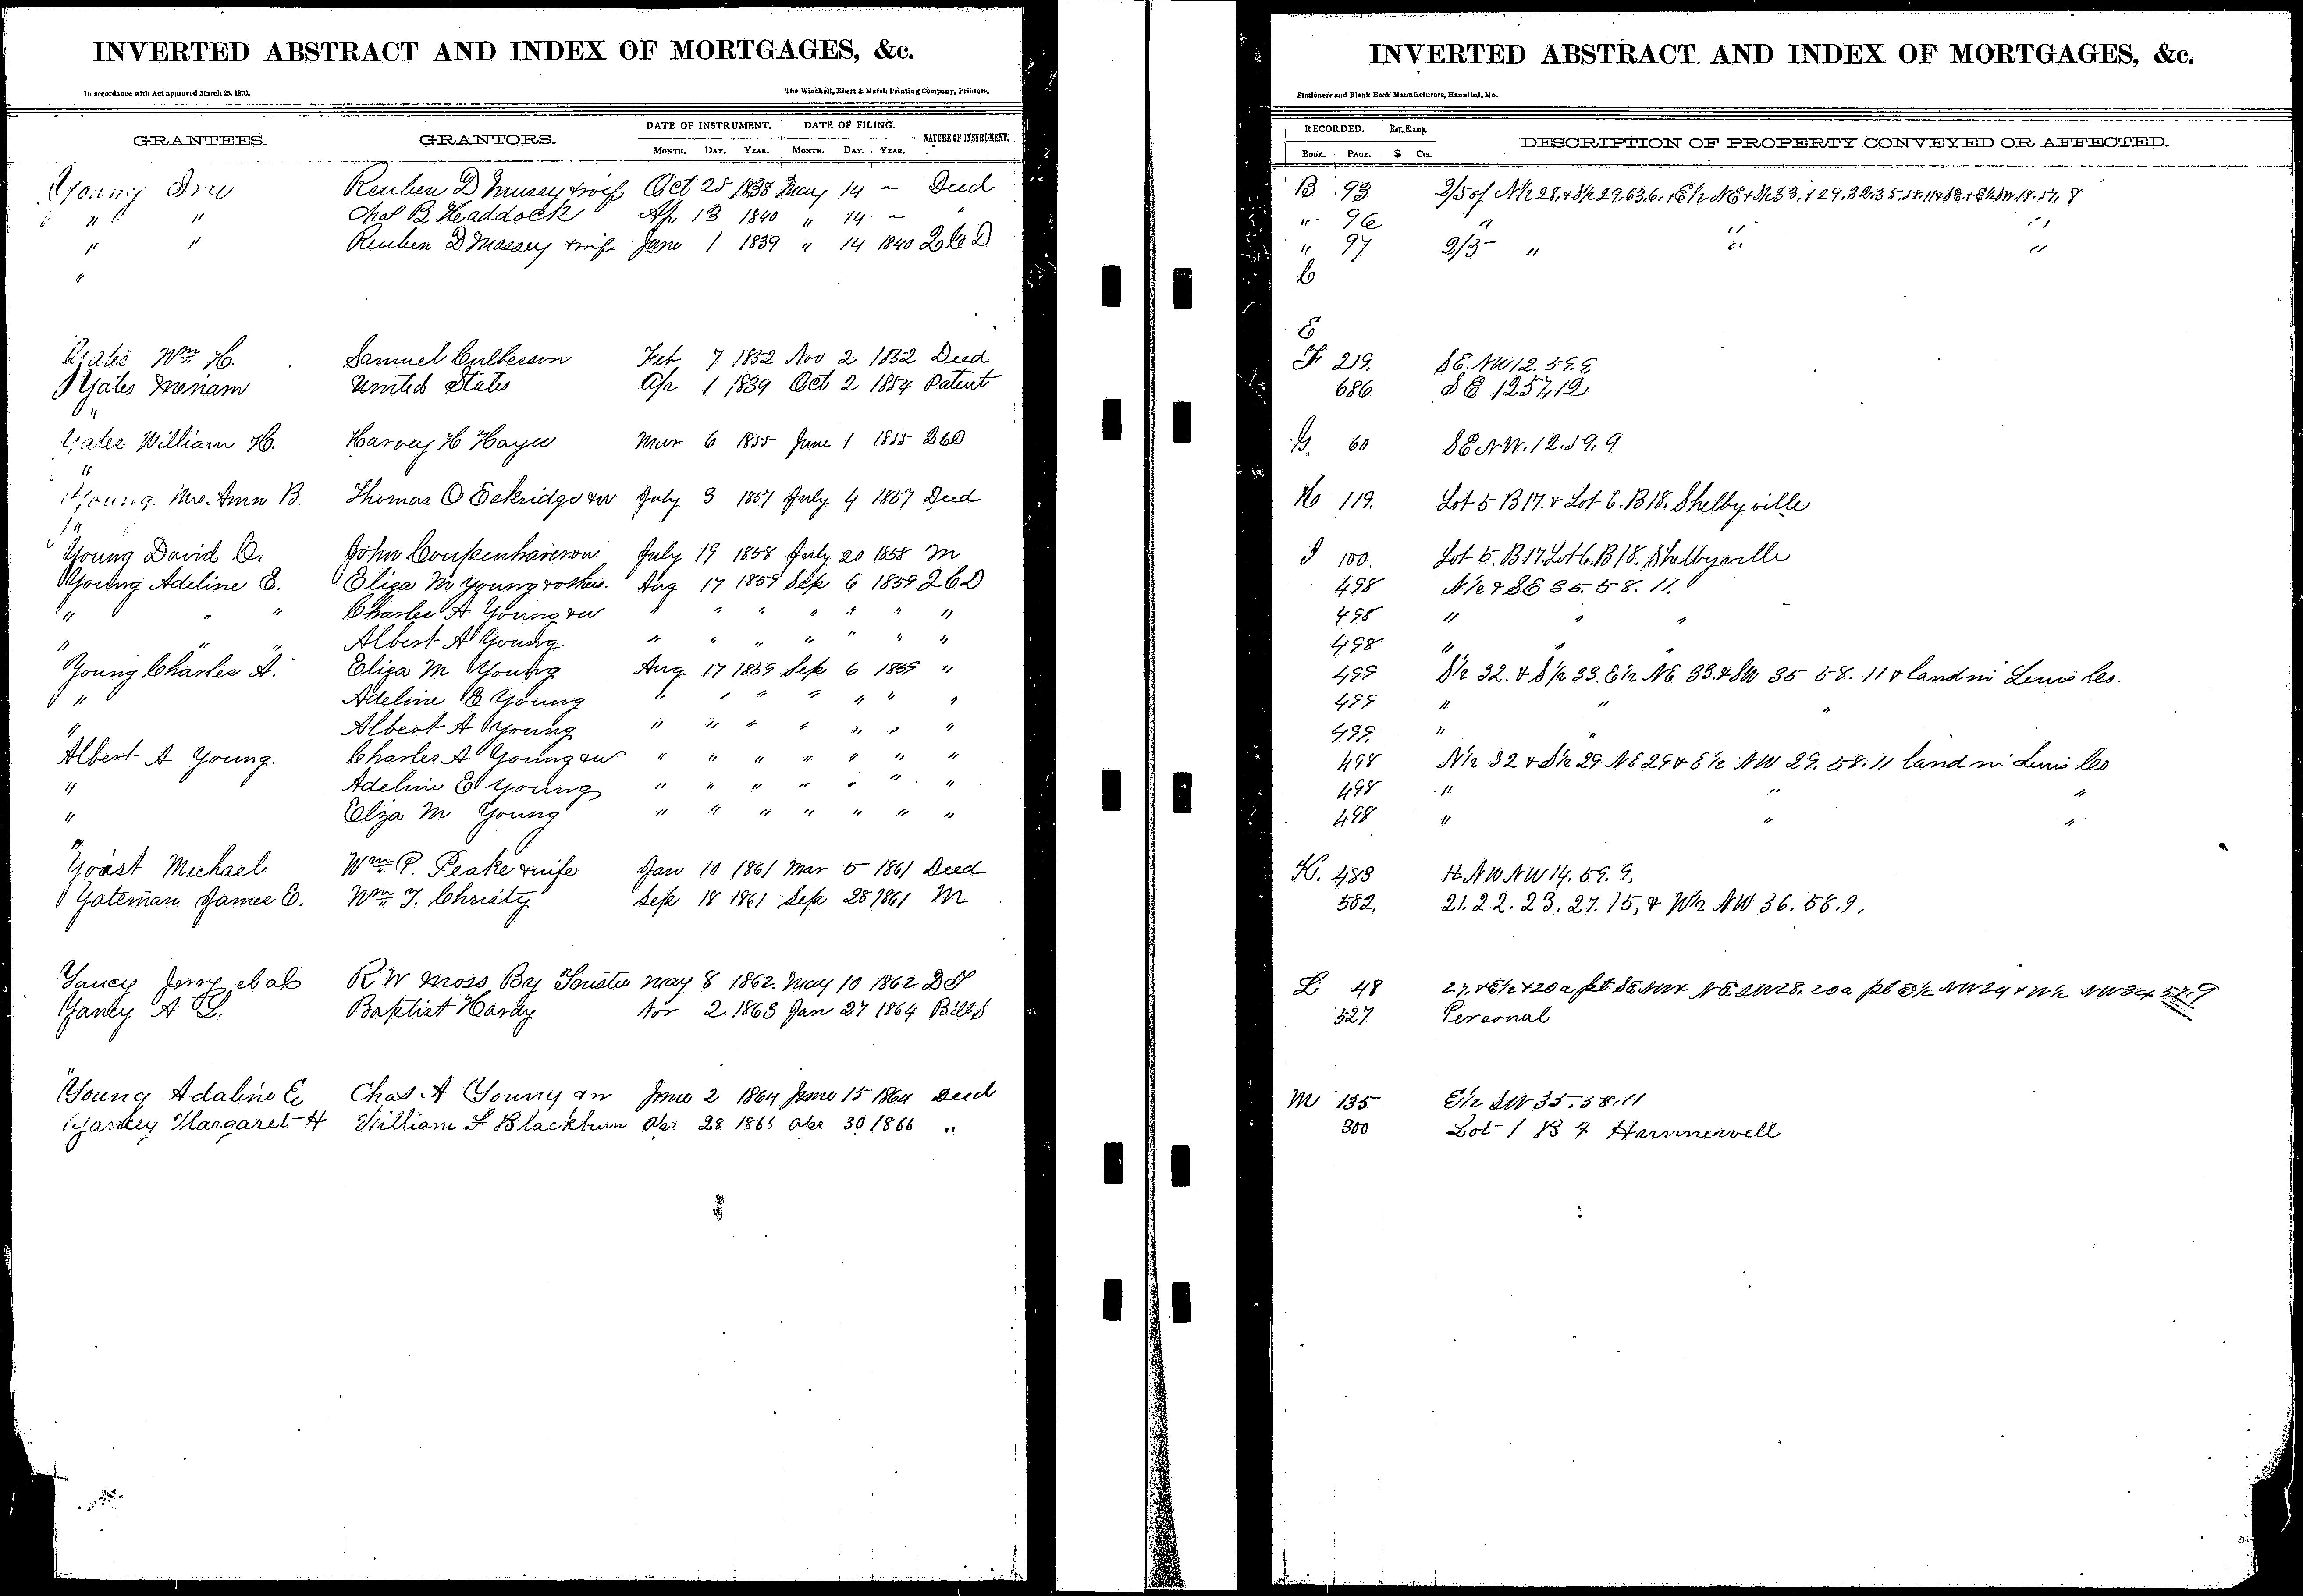 INVERTED ABSTRACT AND INDEX OF MORTGAGES, &c.
In accordance with Act approved March 25, 1870. The Winchell, Ebert & Marsh Printing Company, Printers,
GRANTEES. GRANTORS. DATE OF INSTRUMENT. DATE OF FILING. NATURE OF INSTRUMENT.
MONTH. DAY. YEAR. MONTH. DAY. YEAR.
Young Reuben D Mussey & wife Oct 25 1838 May 14 – Deed
" " Chas B Haddock Ap 13 1840 " 14 – "
" " Reuben D Massey & wife June 1 1839 " 14 1840 2 C D
"
Yates Wm H. Samuel Culberson Feb 7 1852 Nov 2 1852 Deed
Yates United States Ap 1 1839 Oct 2 1854 Patent
"
Yates William H. Harvey H Mar 6 1855 June 1 1855 2 C D
"
Young. Mrs. Ann B. Thomas O Eskridge & w July 3 1857 July 4 1857 Deed
"
Young David O. John July 19 1858 July 20 1858 M
Young Adeline E. Eliza M Young & others. Aug 17 1859 Sep 6 1859 2 C D
" " " Charles A Young & w " " " " " " "
" " " Albert A Young. " " " " " " "
Young Charles A. Eliza M Young Aug 17 1859 Sep 6 1859 "
" " Adeline E Young " " " " " " "
" Albert A Young " " " " " " "
Albert A Young. Charles A Young & w " " " " " " "
" Adeline E Young " " " " " " "
" Eliza M Young " " " " " " "
"
Yoast Michael Wm P. Peake & wife Jan 10 1861 Mar 5 1861 Deed
Yateman James E. Wm T. Christy Sep 18 1861 Sep 28 1861 M
Yancy Jerry et al R W Moss By Trustee May 8 1862. May 10 1862 D T
Yancy A L. Baptist Hardy Nov 2 1863 Jan 27 1864 Bill S
"
Young Adaline E Chas A Young & w June 2 1864 June 15 1864 Deed
Yancey Margaret H William F Blackburn Apr 28 1866 Apr 30 1866 "
INVERTED ABSTRACT AND INDEX OF MORTGAGES, &c.
Stationers and Blank Book Manufacturers, Hannibal, Mo.
RECORDED. Rev. Stamp. DESCRIPTION OF PROPERTY CONVEYED OR AFFECTED.
BOOK. PAGE. $ Cts.
B 93 2/5 of N½ 28,
" 96 " " "
" 97 2/3 " " "
C
E
F 219. SE NW 12. 59. 9.
686 SE 12 57, 12
G. 60 SE NW. 12. 59. 9
H 119. Lot 5 B 17. & Lot 6. B 18. Shelbyville
I 100. Lot 5. B 17. Lot 6. B 18. Shelbyville
498 N½ & SE 35. 58. 11.
498 " " "
498 " "
499 S½ 32. & S½ 33. E½ NE 33. & SW 35 58. 11 & land in Lewis Co.
499 " " "
499. " "
498 N½ 32 & S½ 29 NE 29 & E½ NW 29. 58. 11 land in Lewis Co
498 " " "
498 " " "
K. 483 NW NW 14. 59. 9.
582. 21. 22. 23. 27. 15, & W½ NW 36. 58. 9.
L 48
527 Personal
M 135 E½ SW 35. 58. 11
300 Lot 1 B 4 Hunnewell